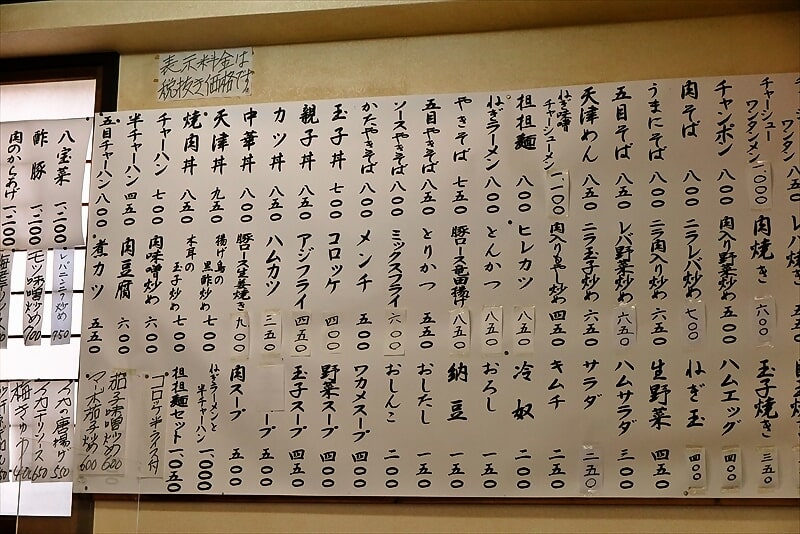 表示料金は
税抜き価格です。
ワンタン
チャーシュー
ワンタンメン 1000
チャンポン 八〇〇
肉そば 八〇〇
うまにそば 八五〇
五目そば 八五〇
天津めん 八五〇
ねぎ味噌
チャーシューメン 一一〇〇
担担麺 八〇〇
ねぎラーメン 八〇〇
やきそば 七五〇
五目やきそば 八五〇
ソースやきそば 八〇〇
かたやきそば 八〇〇
玉子丼 七〇〇
親子丼 八五〇
カツ丼 八五〇
中華丼 八〇〇
天津丼 九五〇
焼肉丼 八五〇
チャーハン 七〇〇
半チャーハン 四五〇
五目チャーハン 八〇〇
肉焼き 六〇〇
肉入り野菜炒め 五〇〇
ニラレバ炒め 七〇〇
ニラ肉入り炒め 六五〇
レバ野菜炒め 六五〇
ニラ玉子炒め 六五〇
肉入りもやし炒め 四五〇
ヒレカツ 八五〇
とんかつ 八五〇
豚ロース竜田揚げ 八五〇
とりかつ 五五〇
ミックスフライ 六〇〇
メンチ 五〇〇
コロッケ 四〇〇
アジフライ 四五〇
ハムカツ 三五〇
豚ロース生姜焼き 九〇〇
揚げ鳥の
黒酢炒め 七〇〇
木耳の
玉子炒め 七〇〇
肉味噌炒め 六〇〇
肉豆腐 六〇〇
煮カツ 五五〇
玉子焼き 三五〇
ハムエッグ 四〇〇
ねぎ玉 四〇〇
生野菜 四五〇
ハムサラダ 三〇〇
サラダ 二五〇
キムチ 二五〇
冷奴 二〇〇
おろし 一五〇
納豆 一五〇
おしたし 一五〇
おしんこ 二〇〇
ワカメスープ 四〇〇
野菜スープ 四〇〇
玉子スープ 四五〇
ープ 五〇〇
肉スープ 五〇〇
ねぎラーメンと
半チャーハン 一、〇〇〇
担担麺セット 一〇五〇
コロッケ半ライス付
茄子味噌炒め 600
マーボ茄子炒め 600
八宝菜 一、二〇〇
酢豚 一、二〇〇
肉のからあげ 一、二〇〇
レバニンニク炒め 750
モツ味噌炒め 700
イカの唐揚げ 550
梅きゅう